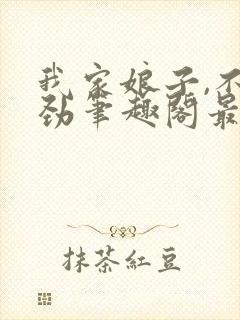 我家娘子,不
劲笔趣阁最
抹茶红豆